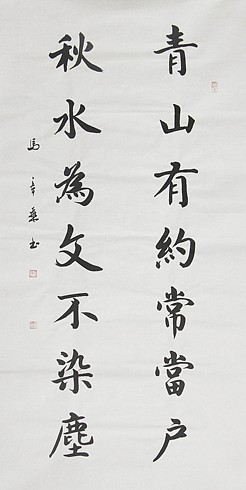 青山有約常當户
秋水為文不染塵